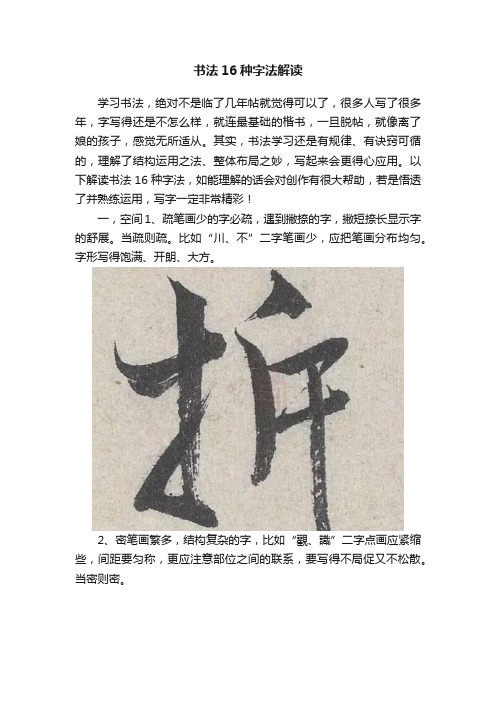 书法16种字法解读
学习书法，绝对不是临了几年帖就觉得可以了，很多人写了很多
年，字写得还是不怎么样，就连最基础的楷书，一旦脱帖，就像离了
娘的孩子，感觉无所适从。其实，书法学习还是有规律、有诀窍可循
的，理解了结构运用之法、整体布局之妙，写起来会更得心应用。以
下解读书法16种字法，如能理解的话会对创作有很大帮助，若是悟透
了并熟练运用，写字一定非常精彩！
一，空间1、疏笔画少的字必疏，遇到撇捺的字，撇短捺长显示字
的舒展。当疏则疏。比如“川、不”二字笔画少，应把笔画分布均匀。
字形写得饱满、开朗、大方。
折
2、密笔画繁多，结构复杂的字，比如“觀、識”二字点画应紧缩
些，间距要匀称，更应注意部位之间的联系，要写得不局促又不松散。
当密则密。